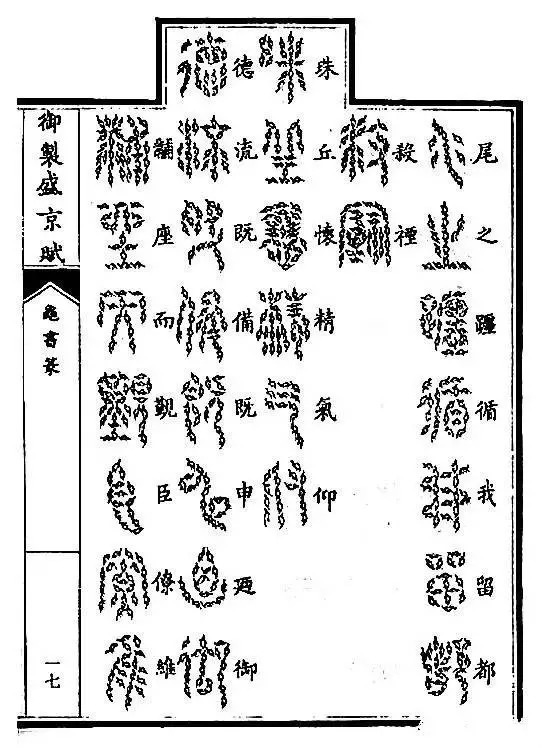 尾之躔循我留都
禋
珠丘懷精氣仰
德流既備既申迺御
黼座而覲臣僚維
御製盛京賦
龜書篆
一七